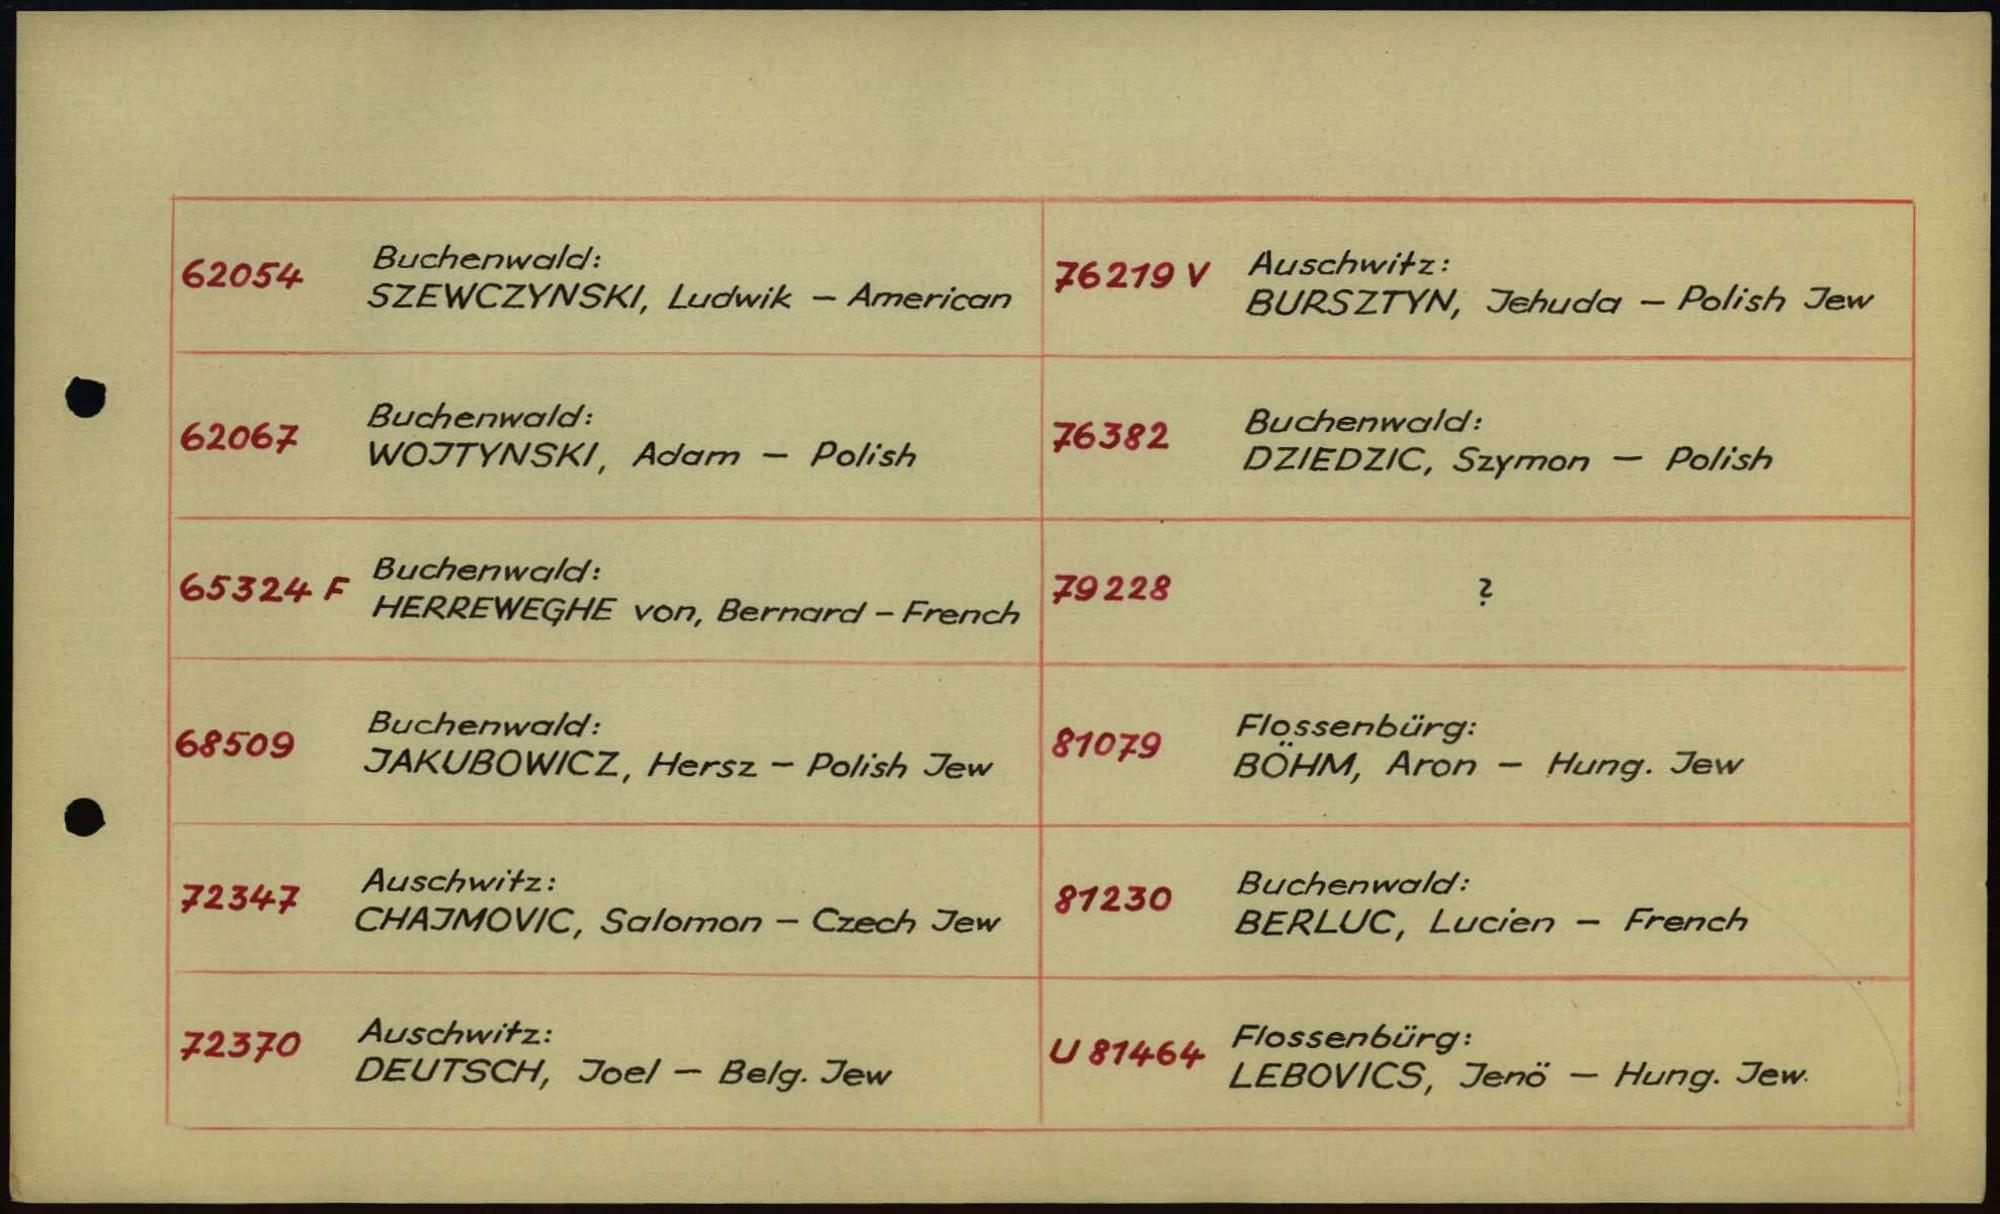 62054
Buchenwald:
SZEWCZYNSKI, Ludwik – American
62067
Buchenwald:
WOJTYNSKI, Adam – Polish
65324 F
Buchenwald:
HERREWEGHE von, Bernard – French
68509
Buchenwald:
JAKUBOWICZ, Hersz – Polish Jew
72347
Auschwitz:
CHAJMOVIC, Salomon – Czech Jew
72370
Auschwitz:
DEUTSCH, Joel – Belg. Jew
76219 V
Auschwitz:
BURSZTYN, Jehuda – Polish Jew
76382
Buchenwald:
DZIEDZIC, Szymon – Polish
79228
?
81079
Flossenbürg:
BÖHM, Aron – Hung. Jew
81230
Buchenwald:
BERLUC, Lucien – French
U 81464
Flossenbürg:
LEBOVICS, Jenö – Hung. Jew.